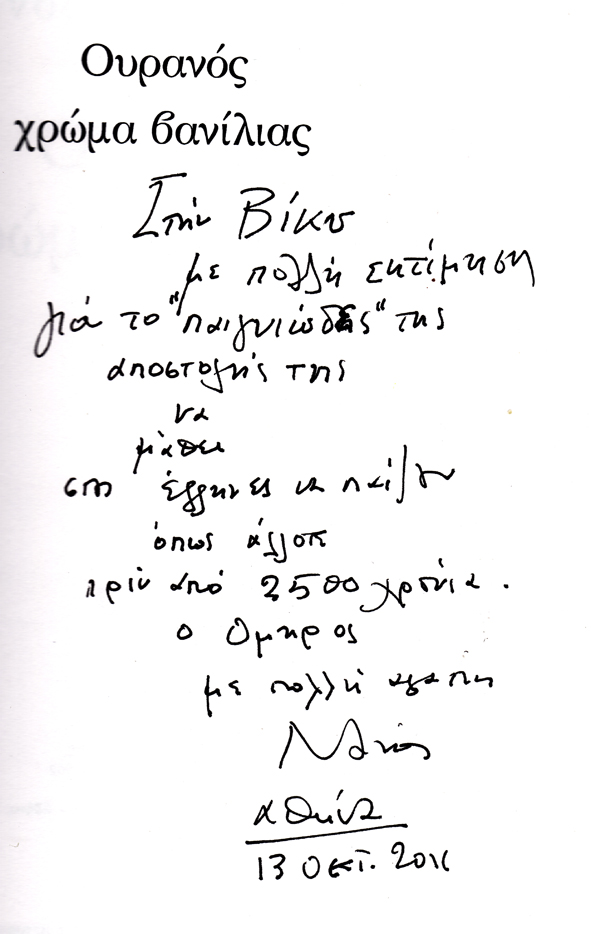 Ουρανός
χρώμα βανίλιας
Στην Βίκυ
με πολλή εκτίμηση
γιά το "παιγνιώδες" της
αποστολής της
να
μάθει
στο έλληνες να παίζουν
όπως άλλοτε
πρίν από 2500 χρόνια.
ο Όμηρος
με πολλή αγάπη
αθήνα
13 ΟΚΤ.